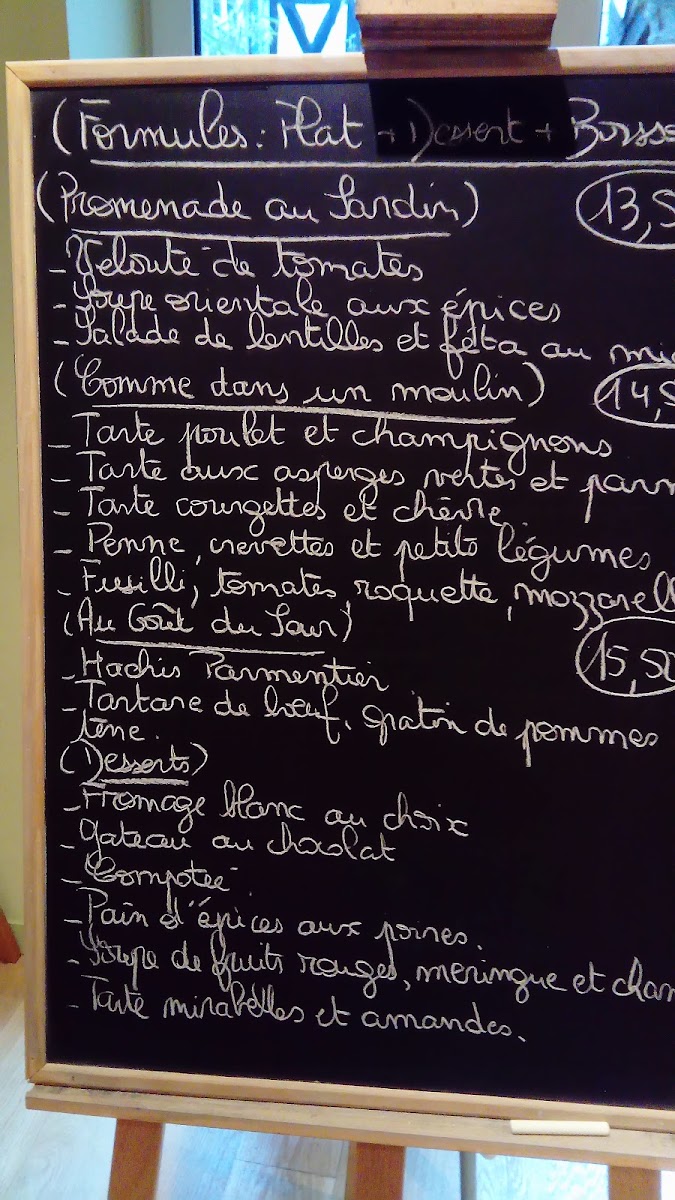 (Formules: Plat + Dessert + Boisso
(Promenade au Jardin) 13,5
- Velouté de tomates
- Soupe orientale aux épices
- Salade de lentilles et féta au mie
(Comme dans un moulin) 14,5
- Tarte poulet et champignons
- Tarte aux asperges vertes et parm
- Tarte courgettes et chèvre
- Penne, crevettes et petits légumes
- Fusilli, tomates, roquette, mozzarell
(Au Goût du Jour) 15,50
- Hachis Parmentier
- Tartare de bœuf, gratin de pommes
tene.
(Desserts)
- Fromage blanc au choix
- Gateau au chocolat
- Compotée
- Pain d'épices aux poires.
- Soupe de fruits rouges, meringue et chan
- Tarte mirabelles et amandes.